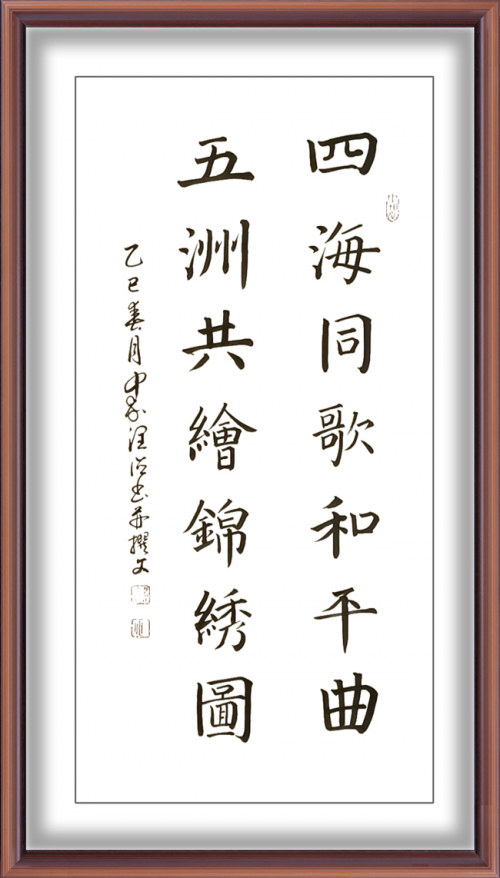 四海同歌和平曲
五洲共繪錦綉圖
乙巳春月中 汪 书并撰文